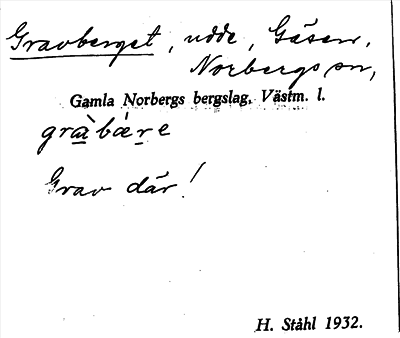 Gravberget, udde, Gäsen,
Norbergs sn,
Gamla Norbergs bergslag, Västm. l.
grà̲bǽṛe
Grav där!
H. Ståhl 1932.